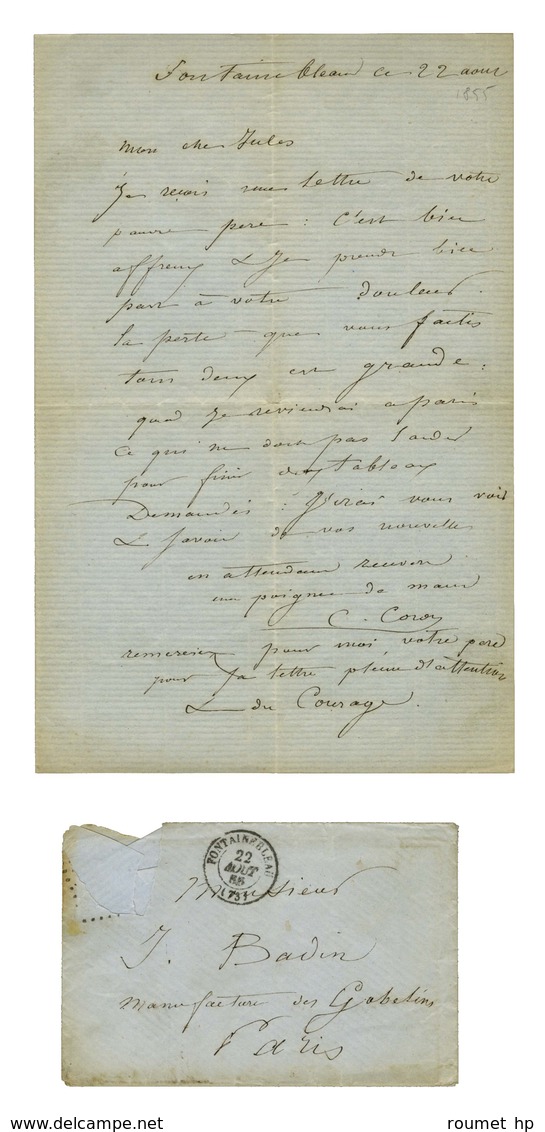 Fontainebleau ce 22 aout
1855
mon cher Jules
Je reçois une lettre de votre
pauvre pere : c'est bien
affreux & Je prends bien
part à votre douleur.
la perte que vous faites
tous deux est grande :
quand Je reviendrai a paris
ce qui ne doit pas tarder
pour finir des tableaux
Demandés : J'irai vous voir
& savoir de vos nouvelles
en attendant recevez
une poignee de main
C. Corot
remerciez pour moi votre pere
pour sa lettre pleine d'attention
& du Courage.
FONTAINEBLEAU
22
AOUT
55
(73)
Monsieur
J. Badin
manufacture des Gobelins
Paris
roumet hp